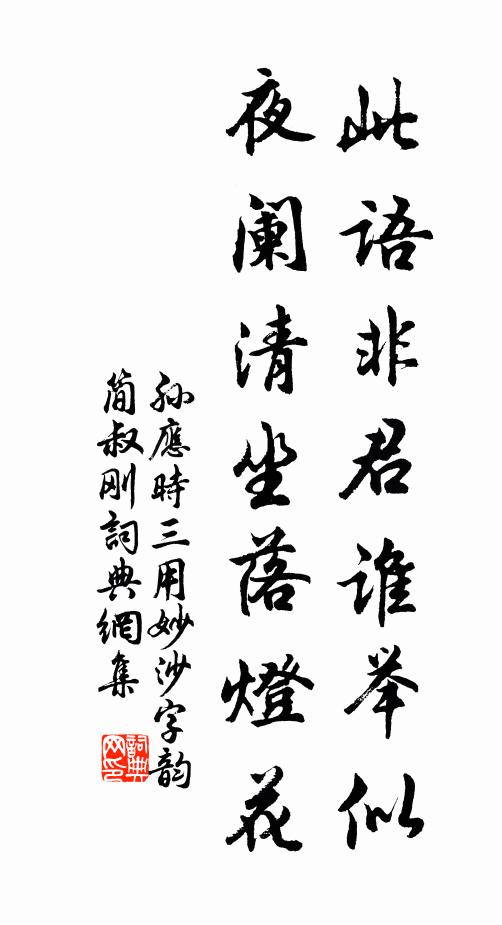 此語非君谁举似
夜阑清坐落燈花
孙應時三用妙沙字韵
简叔刚詞典網集
詞典网印